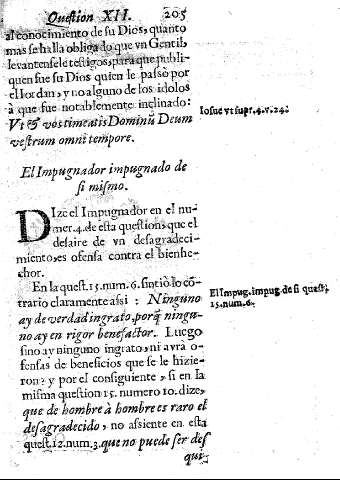 Question XII. 205
al conocimiento de su Dios, quanto
mas se halla obligado que vn Gentil,
levantensele testigos, para que publi-
quen fue su Dios quien le passò por
el Iordan, y no alguno de los idolos
à que fue notablemente inclinado:
Vt & vos timeatis Dominũ Deum
vestrum omni tempore.
Iosue vt supr. 4. v. 24.
El Impugnador impugnado de
si mismo.
DIze el Impugnador en el nu-
mer. 4. de esta question, que el
desaire de vn desagradeci-
miento, es ofensa contra el bienhe-
chor.
En la quest. 15. num. 6. sintiò lo cõ-
trario claramente assi: Ninguno
ay de verdad ingrato, porq̃ ningu-
no ay en rigor benefactor. Luego
sino ay ninguno ingrato, ni avrà o-
fensas de beneficios que se le hizie-
ron? y por el consiguiente, si en la
misma question 15. numero 10. dize,
que de hombre à hombre es raro el
desagradecido, no assiente en esta
quest. 12. num. 3. que no puede ser des
qui-
El Impug. impug. de si quest.
15. num. 6.